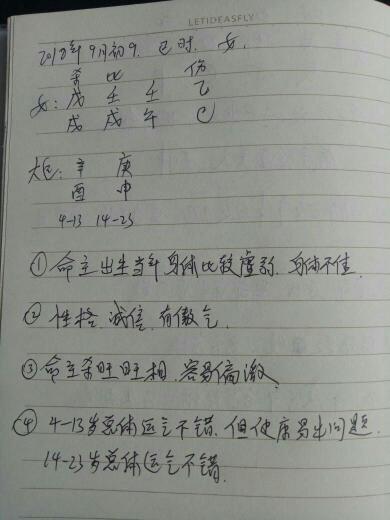 LETIDEASFLY
2018年9月初9. 巳时. 女.
杀 比 伤
女: 戊 壬 壬 乙
戌 戌 午 巳
大运: 辛 庚
酉 申
4-13 14-23
① 命主出生当年身体比较虚弱. 身体不佳.
② 性格诚信. 有傲气.
③ 命主杀旺日主相. 容易偏激.
④ 4-13岁总体运气不错. 但健康易出问题.
14-23岁总体运气不错.